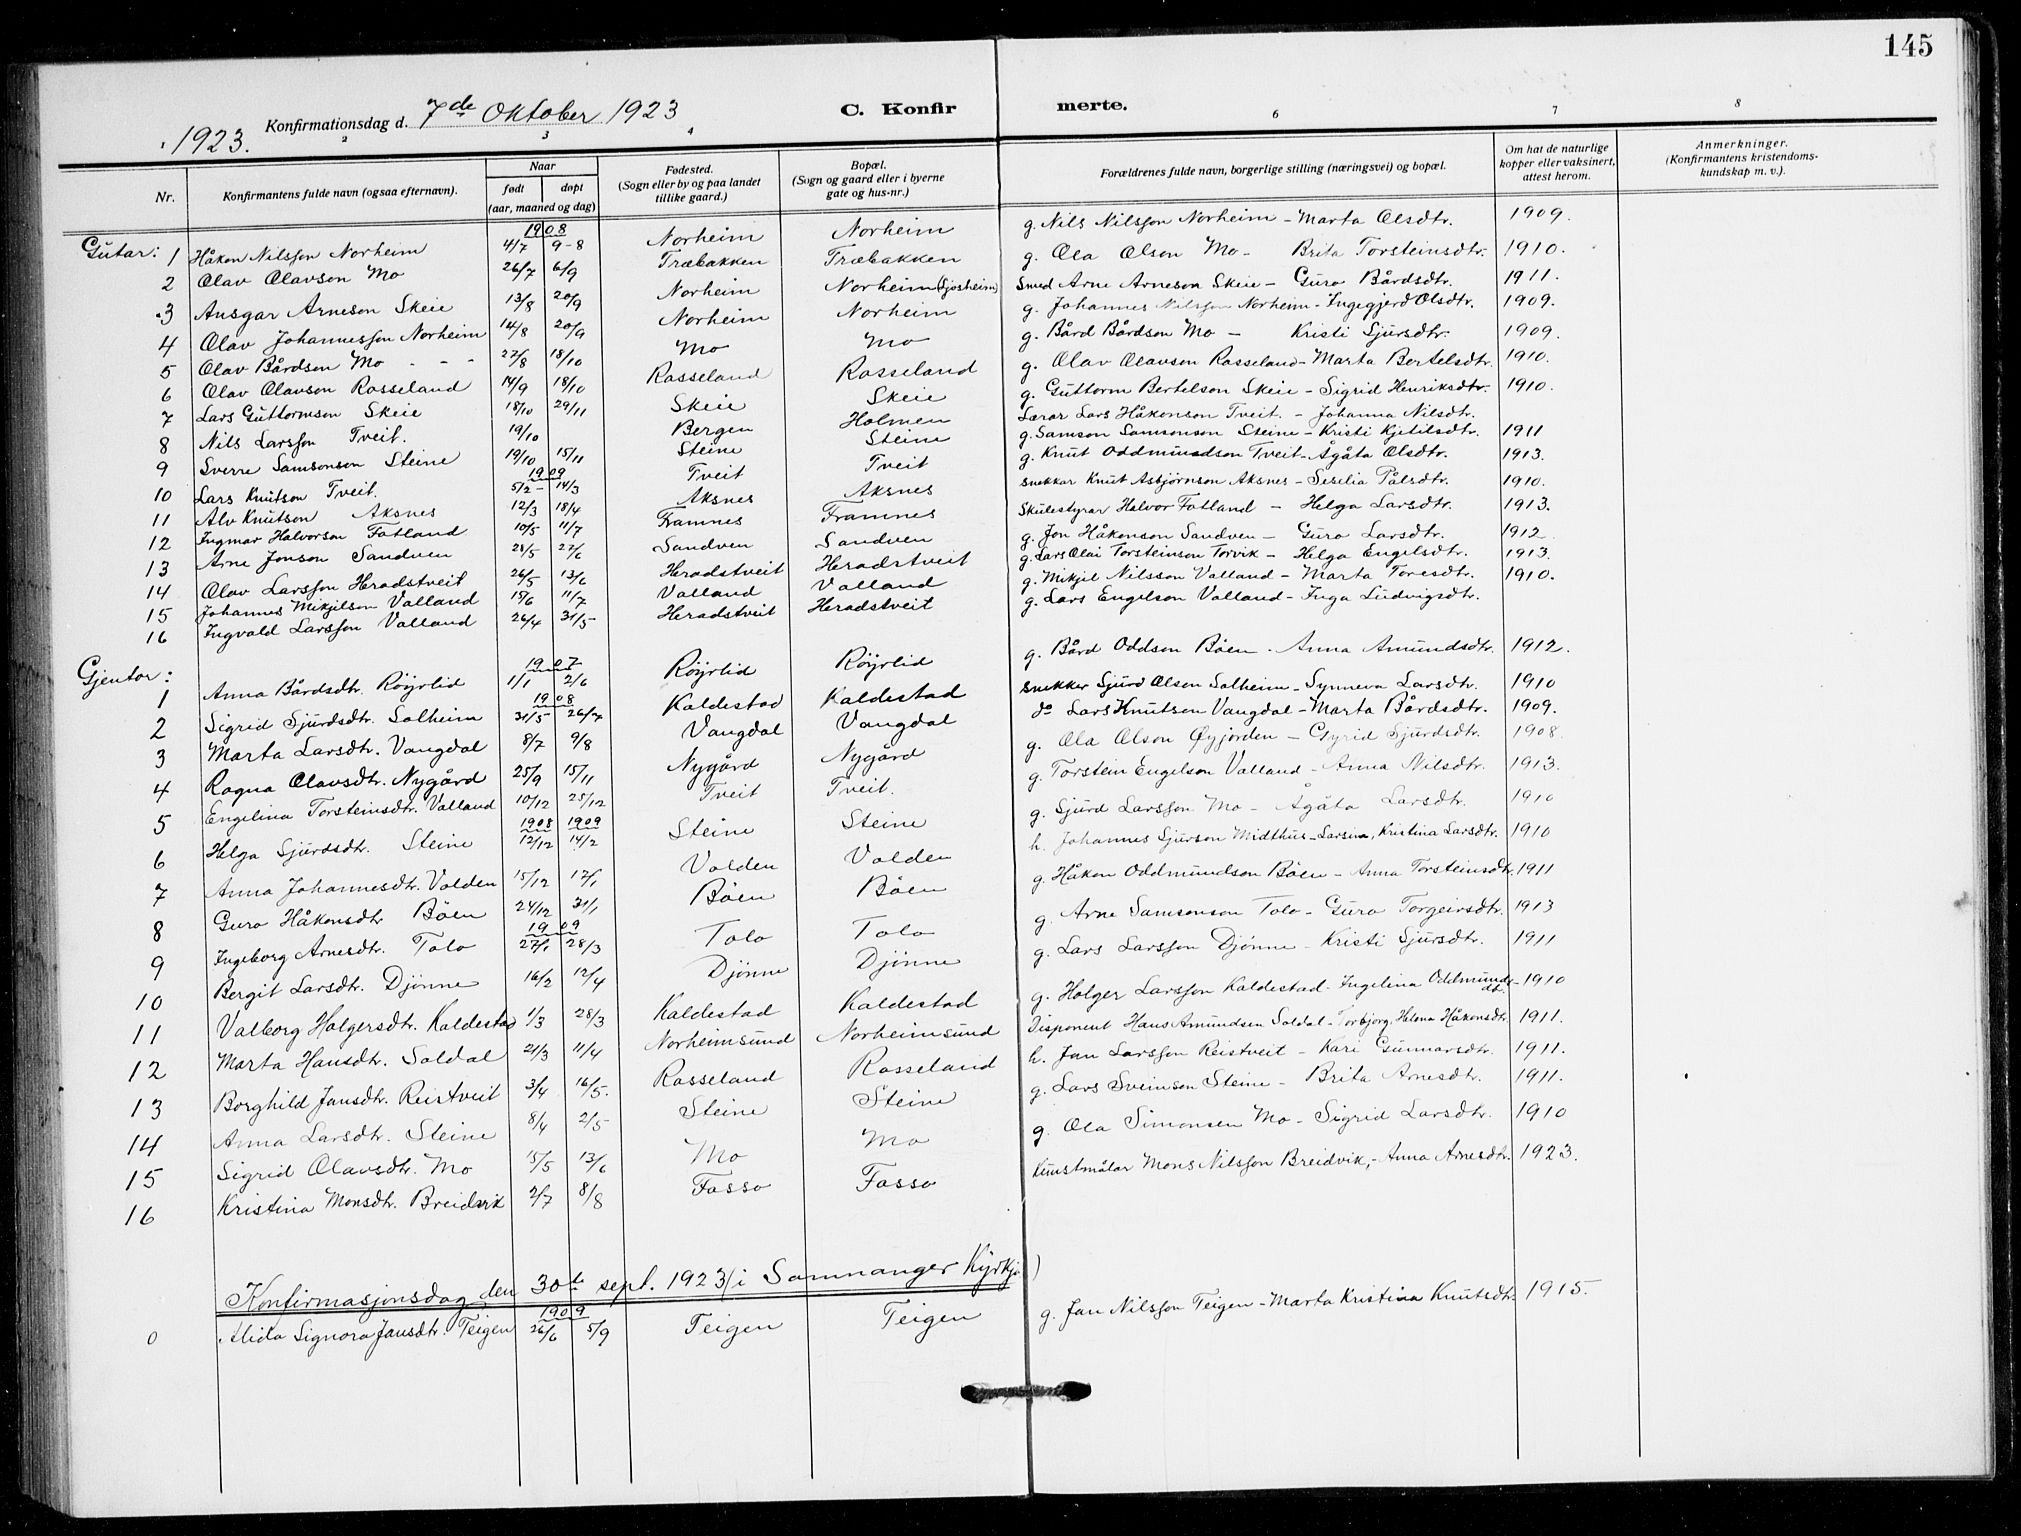 145
1923. Konfirmationsdag d. 7de Oktober 1923 C. Konfirmerte.
2 3 4 6 7 8
Nr. Konfirmantens fulde navn (ogsaa efternavn). Naar født døpt (aar, maaned og dag) Fødested. (Sogn eller by og paa landet tillike gaard.) Bopæl. (Sogn og gaard eller i byerne gate og hus-nr.) Forældrenes fulde navn, borgerlige stilling (næringsvei) og bopæl. Om hat de naturlige kopper eller vaksinert, attest herom. Anmerkninger. (Konfirmantens kristendoms-kundskap m. v.).
1908
Gutar: 1 Håkon Nilsson Norheim 4/7 9-8 Norheim Norheim g. Nils Nilsson Norheim - Marta Olsdtr. 1909.
2 Olav Olavson Mo 26/7 6/9 Træbakken Træbakken g. Ola Olson Mo - Brita Torsteinsdtr. 1910.
3 Ansgar Arneson Skeie 13/8 20/9 Norheim Norheim (Sjøsheim) Smed Arne Arneson Skeie - Guro Bårdsdtr. 1911.
4 Olav Johannesson Norheim 14/8 20/9 Norheim Norheim g. Johannes Nilsson Norheim - Ingegjerd Olsdtr. 1909.
5 Olav Bårdson Mo - - - 27/8 18/10 Mo Mo g. Bård Bårdson Mo - Kristi Sjursdtr. 1909.
6 Olav Olavson Rosseland 14/9 18/10 Rosseland Rosseland g. Olav Olavson Rosseland - Marta Bertelsdtr. 1910.
7 Lars Guttormson Skeie 18/10 29/11 Skeie Skeie g. Guttorm Bertelson Skeie - Sigrid Henriksdtr. 1910.
8 Nils Larsson Tveit. 19/10 Bergen Holmen Lærar Lars Håkonson Tveit. - Johanna Nilsdtr.
9 Sverre Samsonson Steine 19/10 15/11 Steine Steine g. Samson Samsonson Steine - Kristi Kjetilsdtr. 1911
1909
10 Lars Knutson Tveit. 5/2 - 14/3 Tveit Tveit g. Knut Oddmundson Tveit - Ågåta Olsdtr. 1913.
11 Alv Knutson Aksnes 12/3 18/4 Aksnes Aksnes snekkar Knut Asbjørnson Aksnes - Sesilia Pålsdtr. 1910.
12 Ingmar Halvorson Fatland 10/5 11/7 Framnes Framnes Skulestyrar Halvor Fatland - Helga Larsdtr. 1913.
13 Arne Jonson Sandven 28/5 27/6 Sandven Sandven g. Jon Håkonson Sandven - Guro Larsdtr. 1912
14 Olav Larsson Heradstveit 26/5 13/6 Heradstveit Heradstveit g. Lars Olai Torsteinson Torvik - Helga Engelsdtr. 1913.
15 Johannes Mikjelson Valland 15/6 11/7 Valland Valland g. Mikjel Nilsson Valland - Marta Toresdtr. 1910.
16 Ingvald Larsson Valland 26/4 31/5 Heradstveit Heradstveit g. Lars Engelson Valland - Inga Ludvigsdtr.
Gjentor: 1907
1 Anna Bårdsdtr. Röyrlid 1/1 2/6 Röyrlid Röyrlid g. Bård Oddson Böen - Anna Amundsdtr. 1912.
1908
2 Sigrid Sjurdsdtr. Solheim 31/5 26/7 Kaldestad Kaldestad snekker Sjurd Olson Solheim - Synneva Larsdtr. 1910
3 Marta Larsdtr. Vangdal 8/7 9/8 Vangdal Vangdal do Lars Knutson Vangdal - Marta Bårdsdtr. 1909.
4 Ragna Olavsdtr. Nygård 25/9 15/11 Nygård Nygård g. Ola Olson Øyjorden - Gyrid Sjurdsdtr. 1908.
5 Engelina Torsteinsdtr. Valland 10/12 25/12 Tveit Tveit. g. Torstein Engelson Valland - Anna Nilsdtr. 1913.
1908 1909
6 Helga Sjurdsdtr. Steine 12/12 14/2 Steine Steine g. Sjurd Larsson Mo - Ågåta Larsdtr. 1910
7 Anna Johannesdtr. Valden 15/12 17/1 Valden Valden h. Johannes Sjurson Midthus - Larsina, Kristina Larsdtr. 1910
8 Guro Håkonsdtr Böen 24/12 31/1 Böen Böen g. Håkon Oddmundson Böen - Anna Torsteinsdtr. 1911
1909
9 Ingeborg Arnesdtr. Tolo 27/1 28/3 Tolo Tolo g. Arne Samsonson Tolo - Guro Torgeirsdtr. 1913
10 Bergit Larsdtr. Djönne 16/2 12/4 Djönne Djönne g. Lars Larsson Djönne - Kristi Sjursdtr. 1911
11 Valborg Holgersdtr. Kaldestad 1/3 28/3 Kaldestad Kaldestad g. Holger Larsson Kaldestad - Ingelina Oddmundsdt. - 1910
12 Marta Hansdtr. Soldal 21/3 11/4 Norheimsund Norheimsund Disponent Hans Amundsen Soldal - Torbjorg Helena Håkonsdtr. 1911.
13 Borghild Jansdtr. Reistveit 3/4 16/5. Rosseland Rosseland h. Jan Larsson Reistveit - Kari Gunnarsdtr. 1911.
14 Anna Larsdtr. Steine 8/4 2/5 Steine Steine g. Lars Sveinson Steine - Brita Arnesdtr. 1911.
15 Sigrid Olavsdtr. Mo 15/5 13/6 Mo Mo g. Ola Simonsen Mo - Sigrid Larsdtr. 1910
16 Kristina Monsdtr. Breidvik 2/7 8/8 Fosso Fosso Kunstmålar Mons Nilsson Breidvik, - Anna Arnesdtr. 1923.
Konfirmasjonsdag den 30te sept. 1923 (i Samnanger Kyrkja)
1909
0 Alida Signora Jansdtr. Teigen 26/6 5/9 Teigen Teigen g. Jan Nilsson Teigen - Marta Kristina Knutsdtr. 1915.